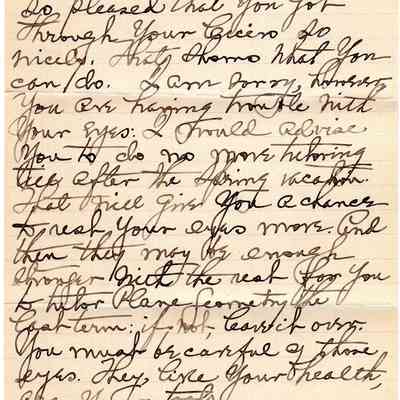 So pleased that you got
through your Cicero so
nicely. That shows what you
can do. I am sorry, however,
you are having trouble with
your eyes. I would advise
you to do no more tutoring
till after the Spring vacation.
That will give you a chance
to rest your eyes more. And
then they may be enough
stronger with the rest for you
to tutor Plane Geometry the
last term; if not, leave it over.
You must be careful of those
eyes. They, like your health,
are